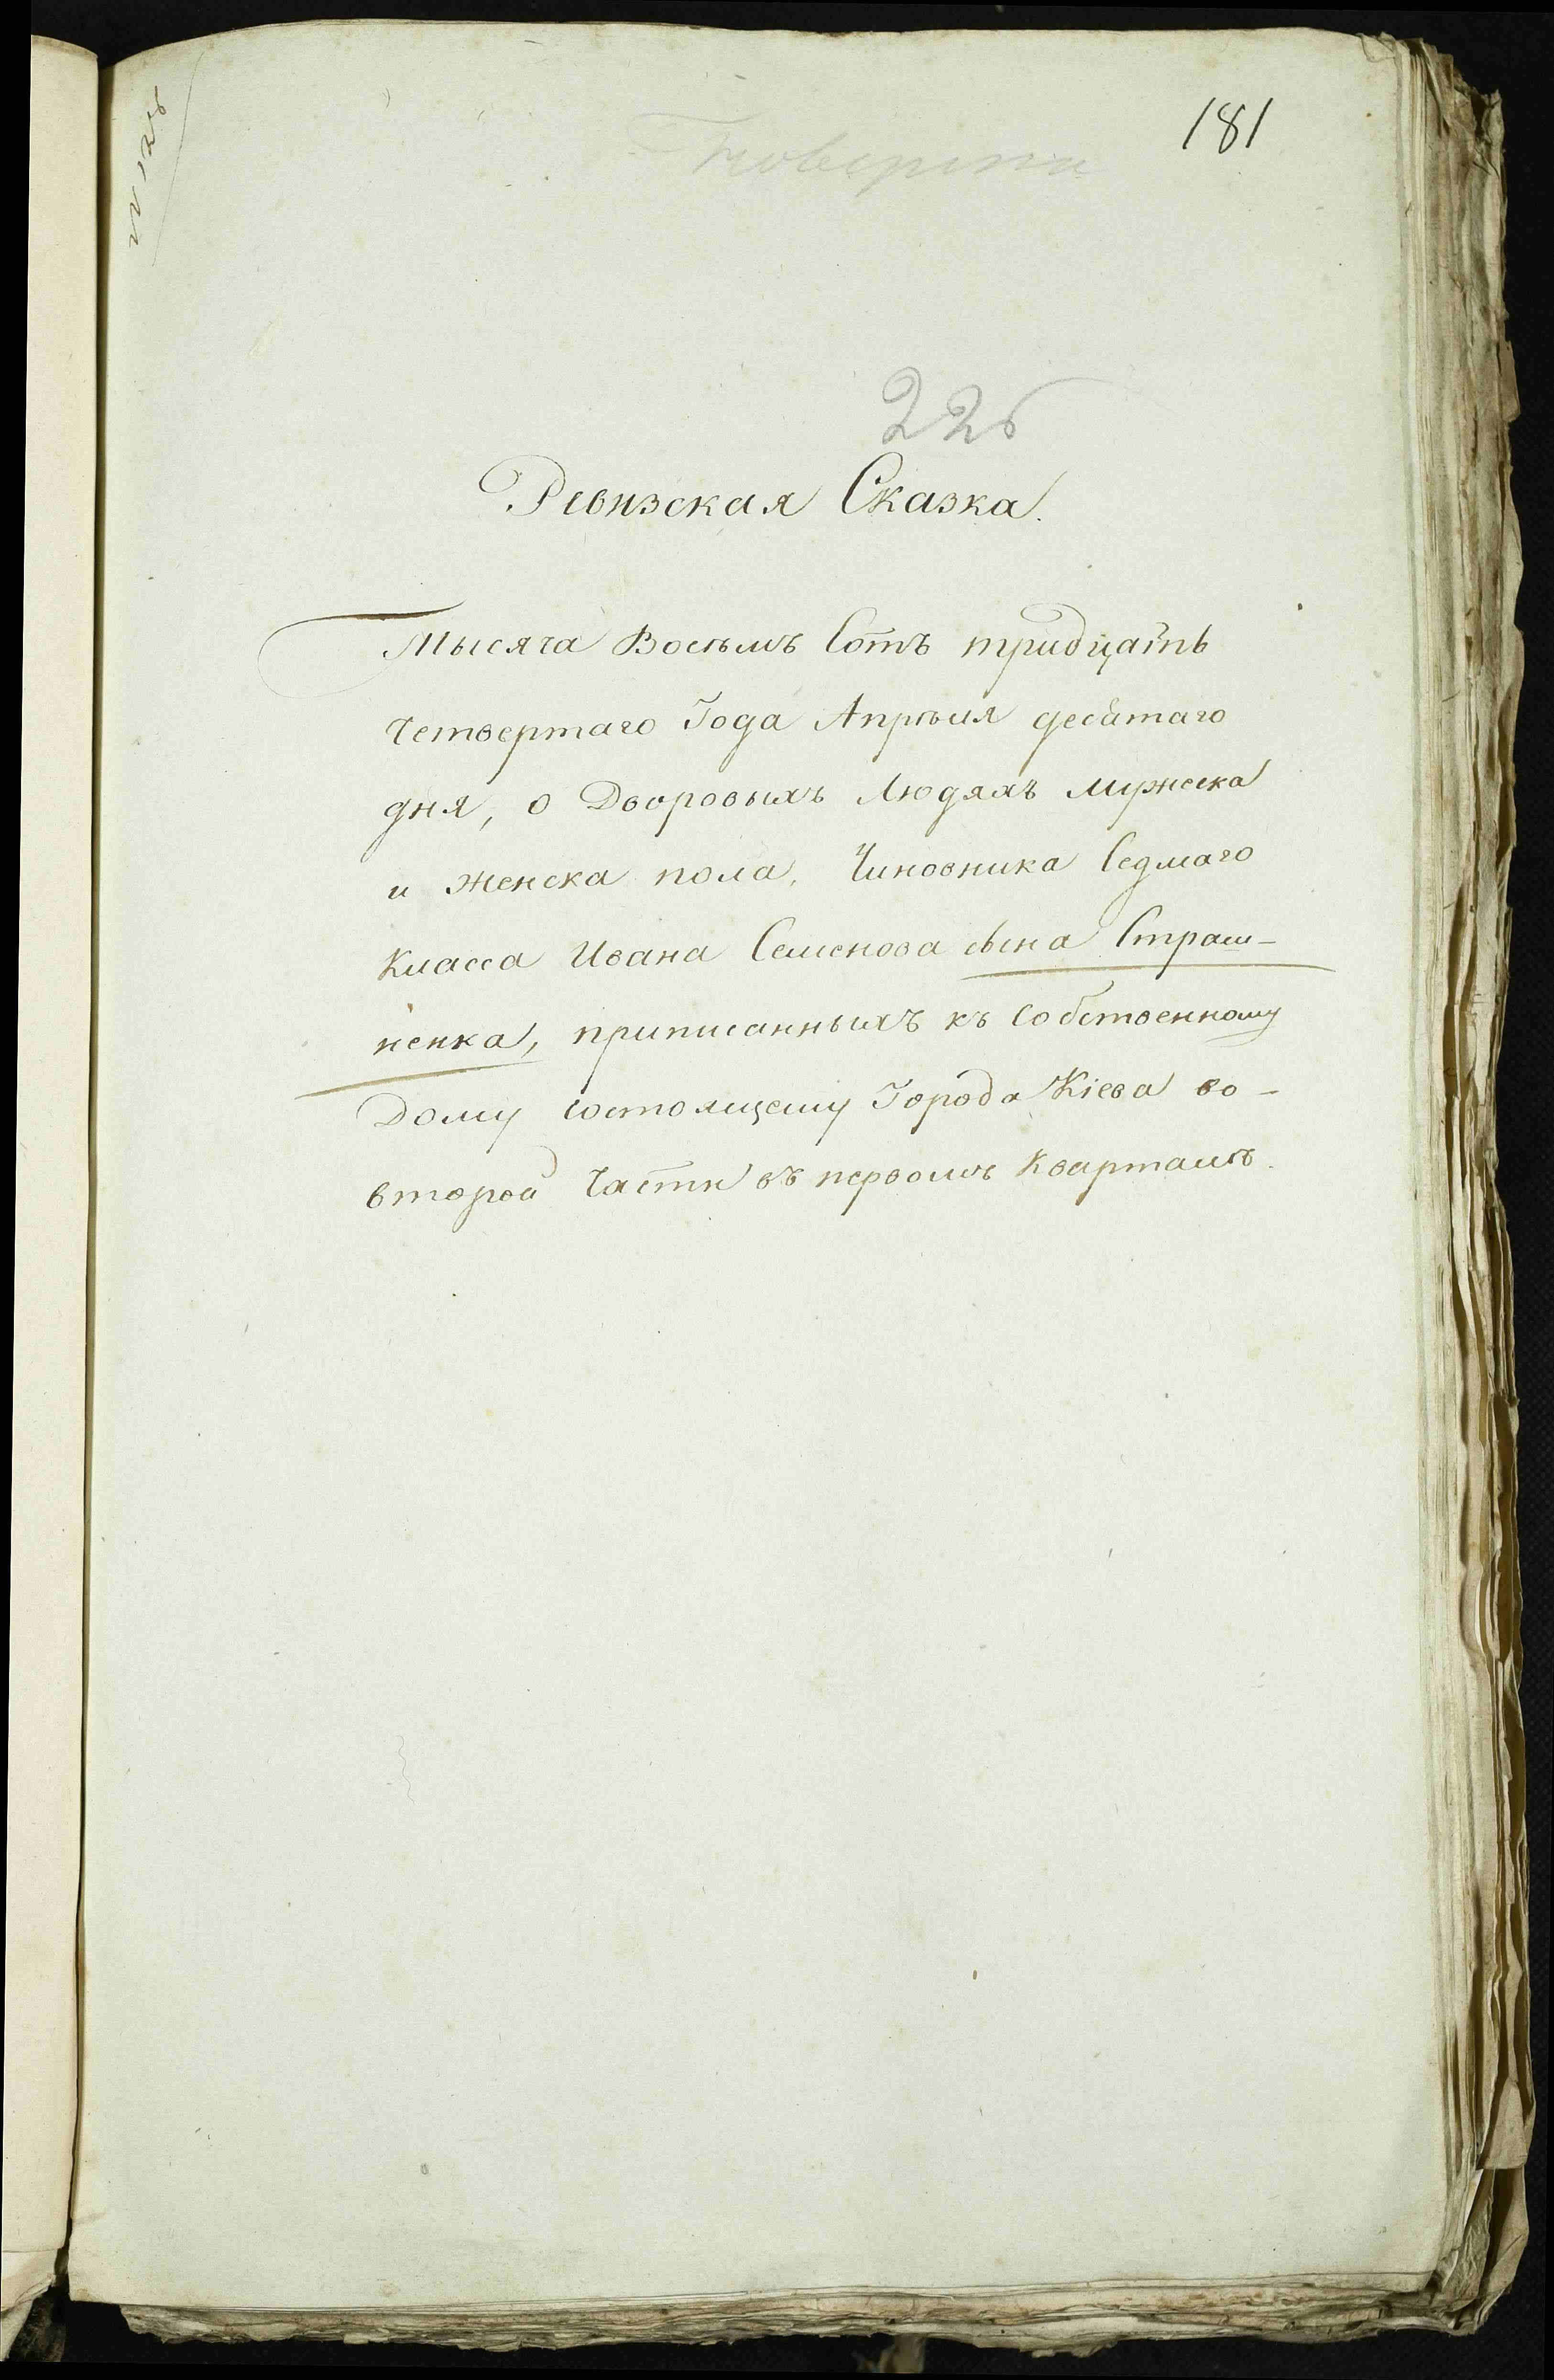 181
226
Ревизская Сказка.
Тысяча Восемъ Сотъ тридцать
четвертаго Года Апрѣля десятаго
дня, о Дворовыхъ Людяхъ мужеска
и женска пола, Чиновника Седмаго
Класса Ивана Семенова сына Страш-
ненка, приписанныхъ къ Собственному
Дому состоящему Города Кіева во-
второй Части въ первомъ Кварталѣ.